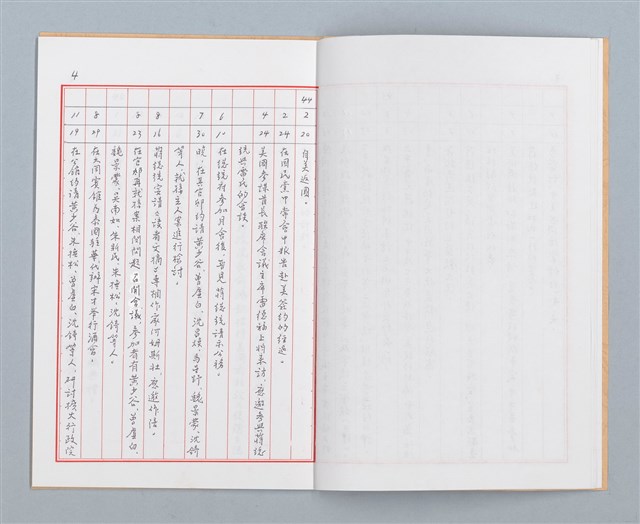 4
44 2 20 自美返國。
2 24 在國民黨中常會中報告赴美簽約的經過。
4 24 美國參謀首長聯席會議主席雷德福上將來訪，應邀參與蔣總
統與雷氏的會談。
6 10 在總統府參加月會後，晉見蔣總統請示公務。
7 30 晚，在其官邸約請黃少谷、曾虛白、沈昌煥、馬星野、魏景蒙、沈錡
等人，就接主人案進行檢討。
8 16 蔣總統宴請《讀者文摘》專欄作家何姆斯社，應邀作陪。
8 23 在官邸再就接案相關問題召開會議，參加者有黃少谷、曾虛白、
魏景蒙、吳南如、朱新民、朱撫松、沈錡等人。
8 29 在大同賓館為泰國駐華代辦宋才舉行酒會。
11 19 在公館約請黃少谷、朱撫松、曾虛白、沈錡等人，研討擴大行政院